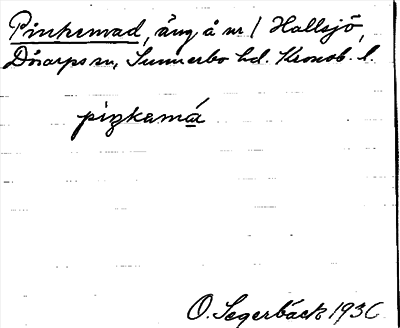 Pinkemad, äng å nr 1 Hallsjö,
Dörarps sn, Sunnerbo hd. Kronob. l.
piŋkamá
O. Segerbäck 1936